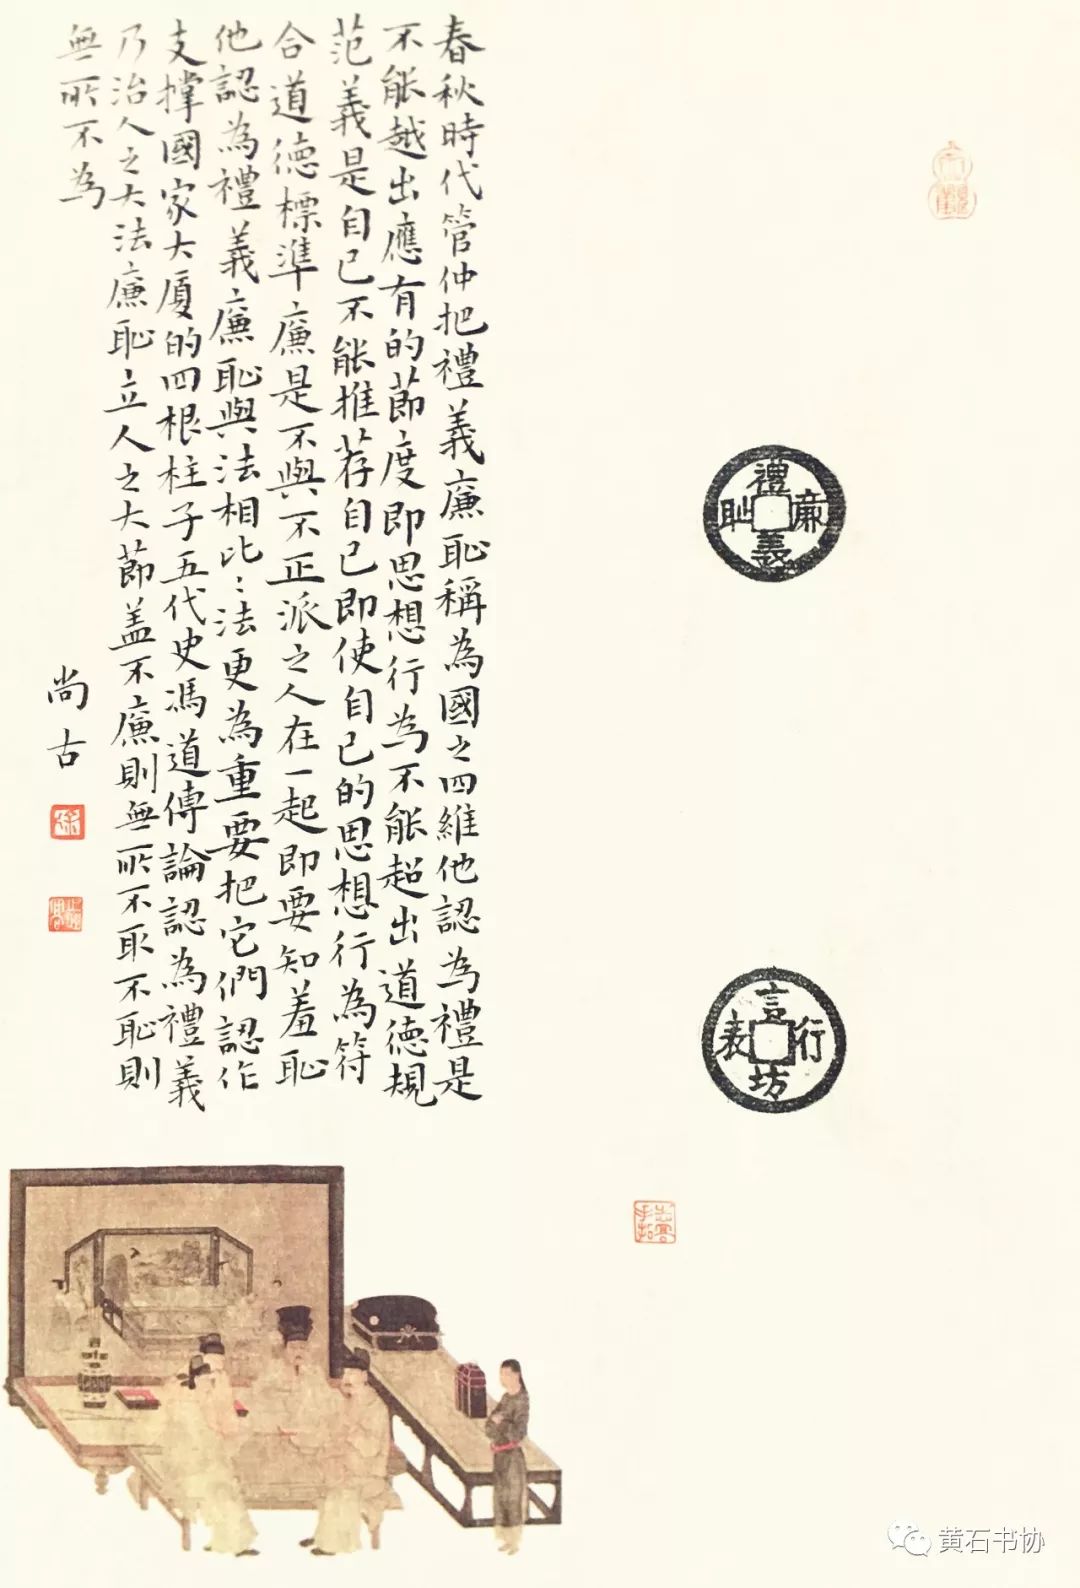 大觀
禮義廉恥
言坊行表
春秋時代管仲把禮義廉恥稱為國之四維他認為禮是
不能越出應有的節度即思想行為不能超出道德規
范義是自己不能推荐自己即使自己的思想行為符
合道德標準廉是不與不正派之人在一起即要知羞恥
他認為禮義廉恥與法相比：法更為重要把它們認作
支撑國家大厦的四根柱子五代史馮道傳論認為禮義
乃治人之大法廉恥立人之大節盖不廉則無所不取不恥則
無所不為
尚古
黄石书协